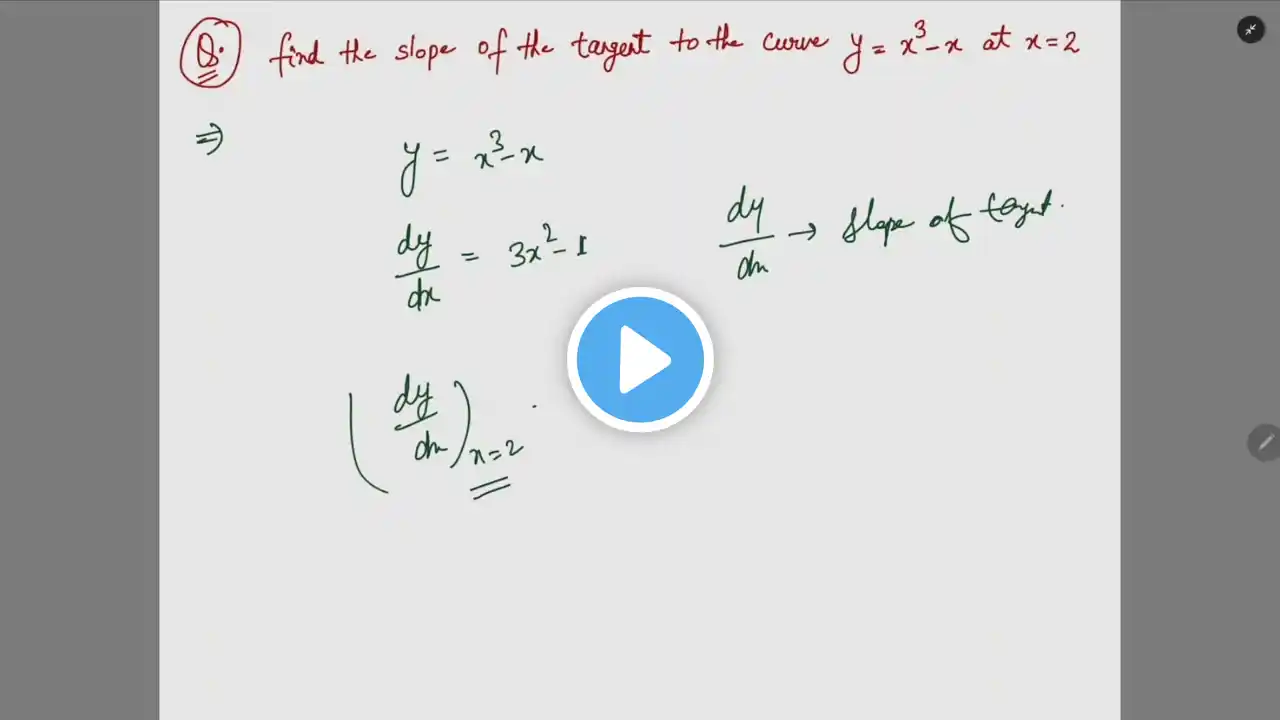 Q. find the slope of the tangent to the curve y = x³-x at x=2
⇒
y = x³-x
dy/dx = 3x²-1
dy/dx → slope of tangent.
(dy/dx)x=2